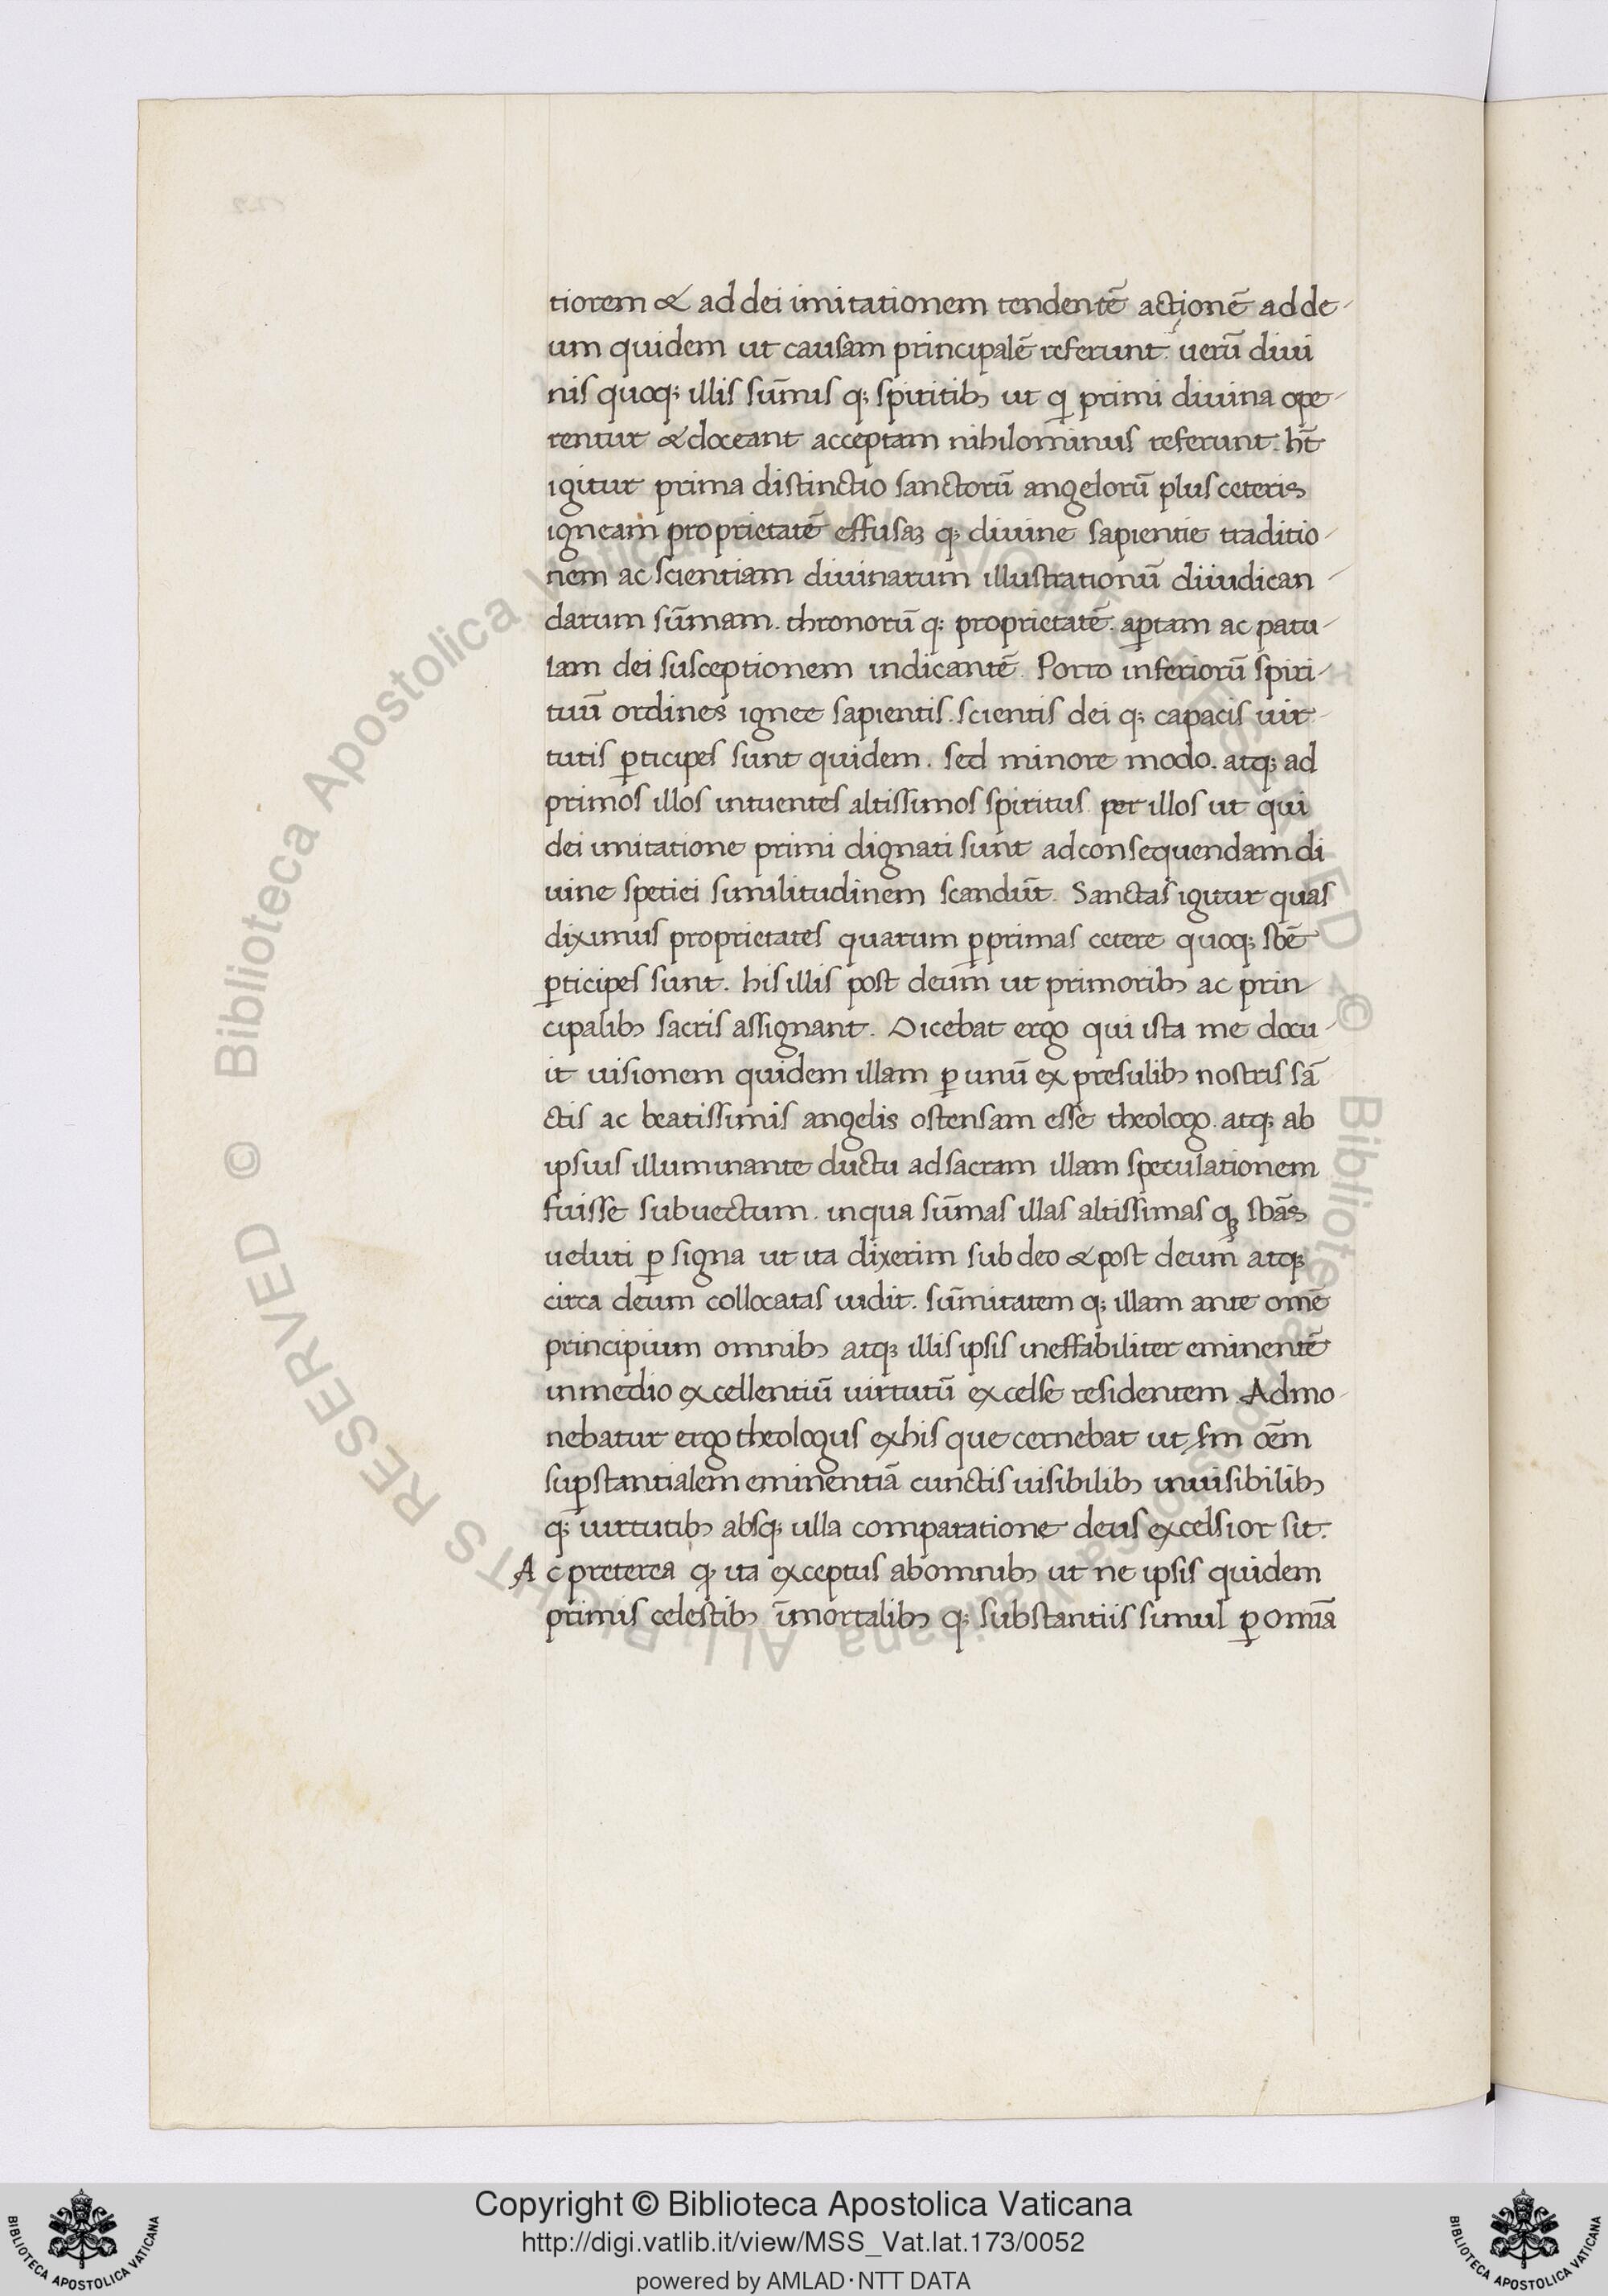 tiorem & ad dei imitationem tendentē actionē ad de-
um quidem ut causam principalē referunt. uerū diui
nis quoq; illis sūmis q; spiritib; ut q̄ primi diuina ope-
rentur & doceant acceptam nihilominus referunt. hn̄t
igitur prima distinctio sanctorū angelorū plus ceteris
igneam proprietatē effusaꝫ q; diuine sapientie traditio-
nem ac scientiam diuinarum illustrationū diiudican-
darum sūmam. thronorū q; proprietatē. aꝑtam ac patu-
lam dei susceptionem indicantē. Porro inferiorū spiri-
tuū ordines ignee sapientis. scientis dei q; capacis uir-
tutis ꝑticipes sunt quidem. sed minore modo. atq; ad
primos illos intuentes altissimos spiritus per illos ut qui
dei imitatione primi dignati sunt ad consequendam di
uine spetiei similitudinem scandūt. Sanctas igitur quas
diximus proprietates quarum ꝑ primas cetere quoq; sbē
ꝑticipes sunt. his illis post deum ut primorib; ac prin-
cipalib; sacris assignant. Dicebat ergo qui ista me docu-
it uisionem quidem illam ꝑ unū ex presulib; nostris sā
ctis ac beatissimis angelis ostensam esse theologo. atq; ab
ipsius illuminante ductu ad sacram illam speculationem
fuisse subuectum. in qua sūmas illas altissimas q; sbās
ueluti ꝑ signa ut ita dixerim sub deo & post deum atq;
circa deum collocatas uidit. sūmitatem q; illam ante omē
principium omnib; atq; illis ipsis ineffabiliter eminentē
in medio excellentiū uirtutū excelse residentem. Admo-
nebatur ergo theologus ex his que cernebat ut sm̄ oēm
suꝑstantialem eminentiā cunctis uisibilib; inuisibilib;
q; uirtutib; absq; ulla comparatione deus excelsior sit.
Ac preterea ꝙ ita exceptus ab omnib; ut ne ipsis quidem
primis celestib; īmortalib; q; substantiis simul ꝑ omīa
Copyright © Biblioteca Apostolica Vaticana
http://digi.vatlib.it/view/MSS_Vat.lat.173/0052
powered by AMLAD·NTT DATA
BIBLIOTECA APOSTOLICA VATICANA
BIBLIOTECA APOSTOLICA VATICANA
© Biblioteca Apostolica Vaticana ALL RIGHTS RESERVED © Biblioteca Apostolica Vaticana ALL RIGHTS RESERVED